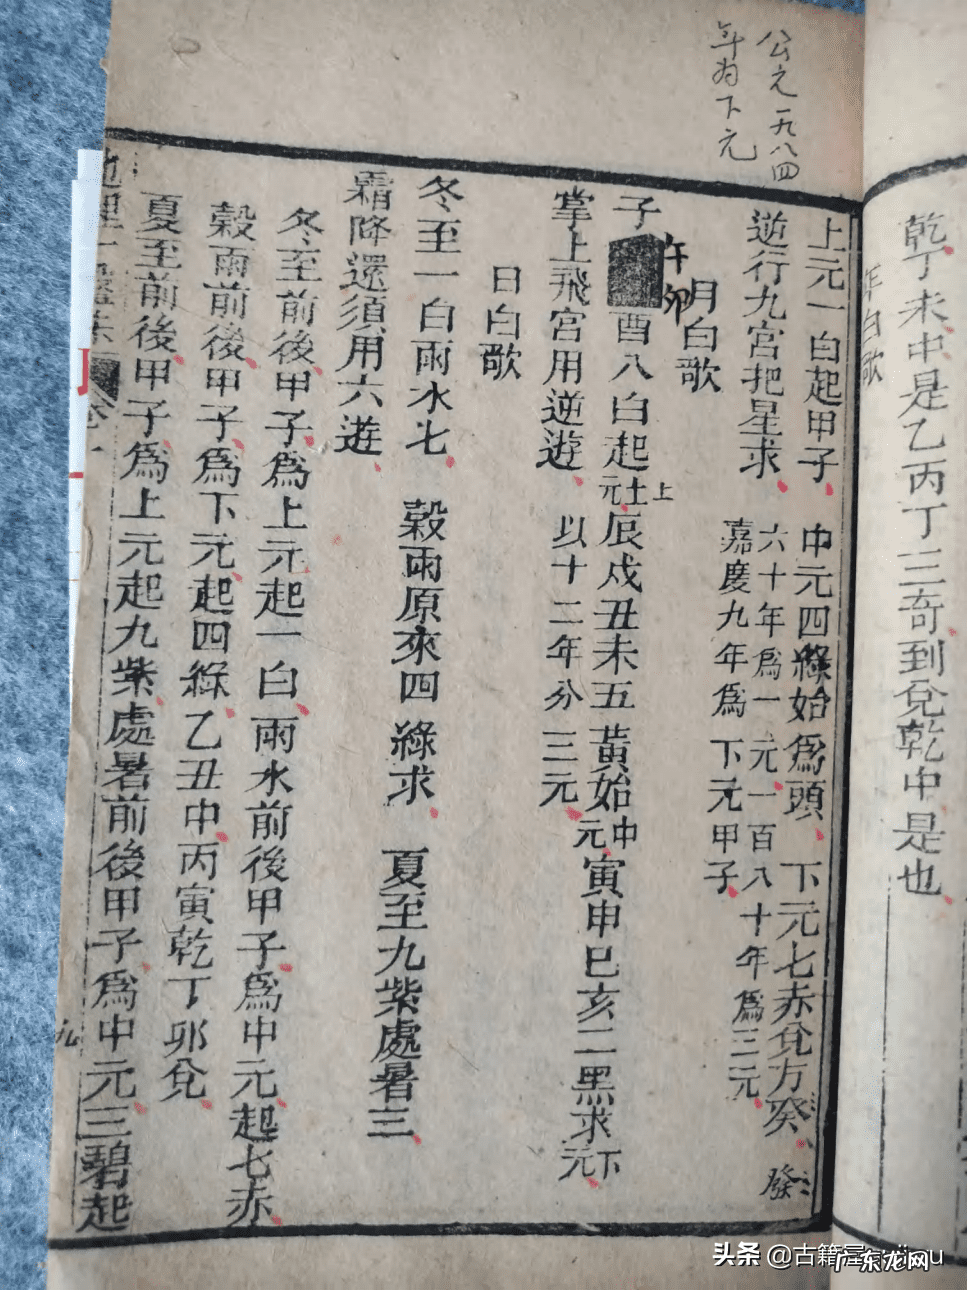 公元一九八四
年为下元
乾丁未中是乙丙丁三奇到兌乾中是也
年白歌
上元一白起甲子 中元四綠始為頭 下元七赤兌方癸 發
逆行九宮把星求 六十年為一元一百八十年為三元
嘉慶九年為下元甲子
月白歌
子午卯酉八白起上元 辰戌丑未五黃始中元 寅申巳亥二黑求下元
掌上飛宮用逆遊 以十二年分三元
日白歌
冬至一白雨水七 穀雨原來四綠求 夏至九紫處暑三
霜降還須用六遊
冬至前後甲子為上元起一白雨水前後甲子為中元起七赤
穀雨前後甲子為下元起四綠乙丑中丙寅乾丁卯兌
夏至前後甲子為上元起九紫處暑前後甲子為中元三碧起
地理一
卷一
九
头条 @古籍屋
广东龙网